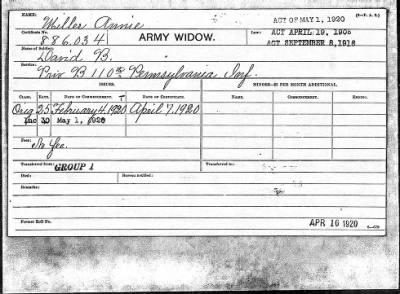 NAME:
Miller Annie
ACT OF MAY 1, 1920
Certificate No.
886.034
ARMY WIDOW.
Law:
ACT APRIL 19, 1908
ACT SEPTEMBER 8, 1916
Name of Soldier:
David B.
Service:
Priv B 110th Pennsylvania Inf.
ISSUES.
MINORS—$2 PER MONTH ADDITIONAL.
CLASS.
RATE.
DATE OF COMMENCEMENT.
DATE OF CERTIFICATE.
NAME.
COMMENCEMENT.
ENDING.
Orig 25 February 4. 1920 April 7. 1920
Inc 30 May 1, 1920
Fees:
No fee.
Transferred from:
GROUP 1
Transferred to:
Died:
Bureau notified:
Remarks:
Former Roll No.
APR 16 1920